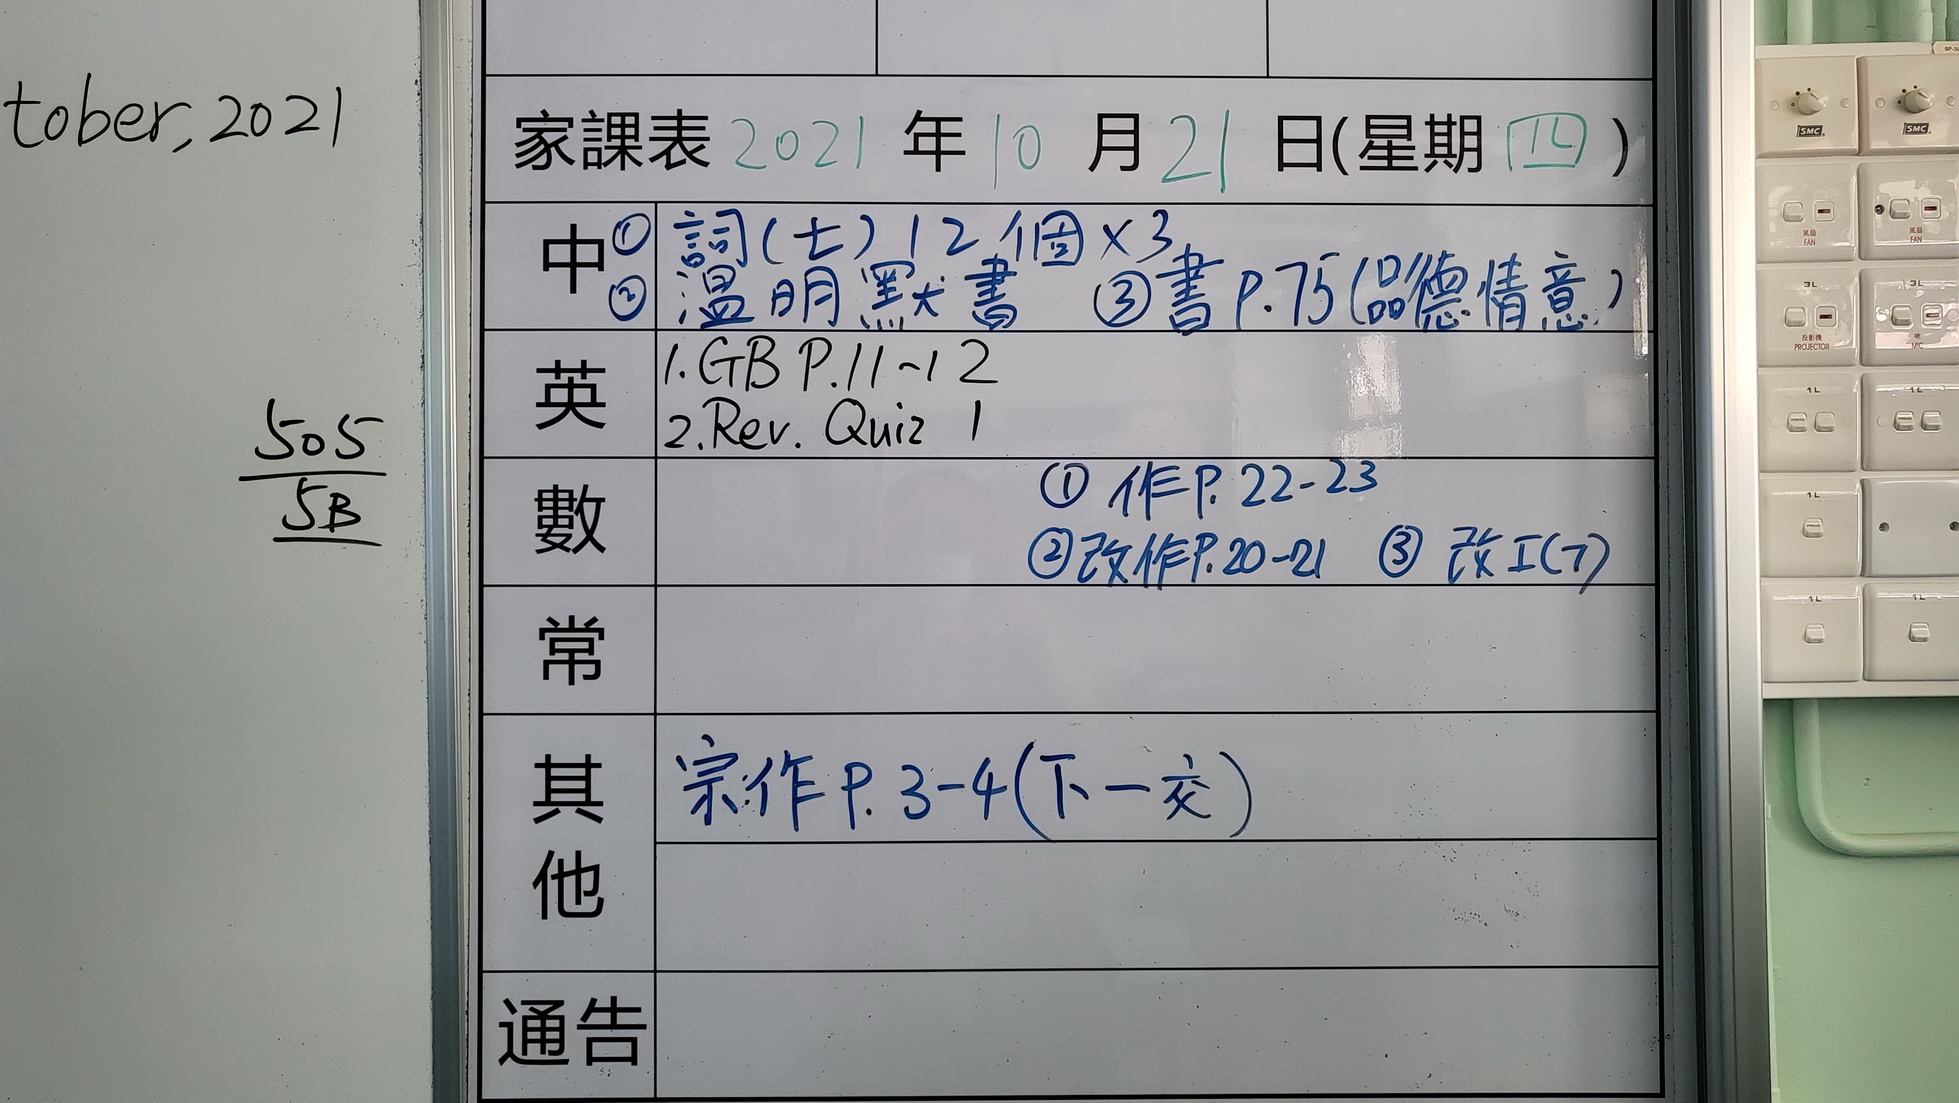 tober, 2021
505
5B
家課表 2021 年 10 月 21 日(星期四)
中 ① 詞(七) 12個×3
② 溫明默書 ③書P.75(品德情意)
英 1. GB P.11~12
2. Rev. Quiz 1
數 ① 作P. 22-23
②改作P.20-21 ③ 改工(7)
常
其他 宗作P. 3-4(下一交)
通告
SMC
SMC
風扇
FAN
風扇
FAN
3L
3L
投影機
PROJECTOR
MIC
1L
1L
1L
1L
1L